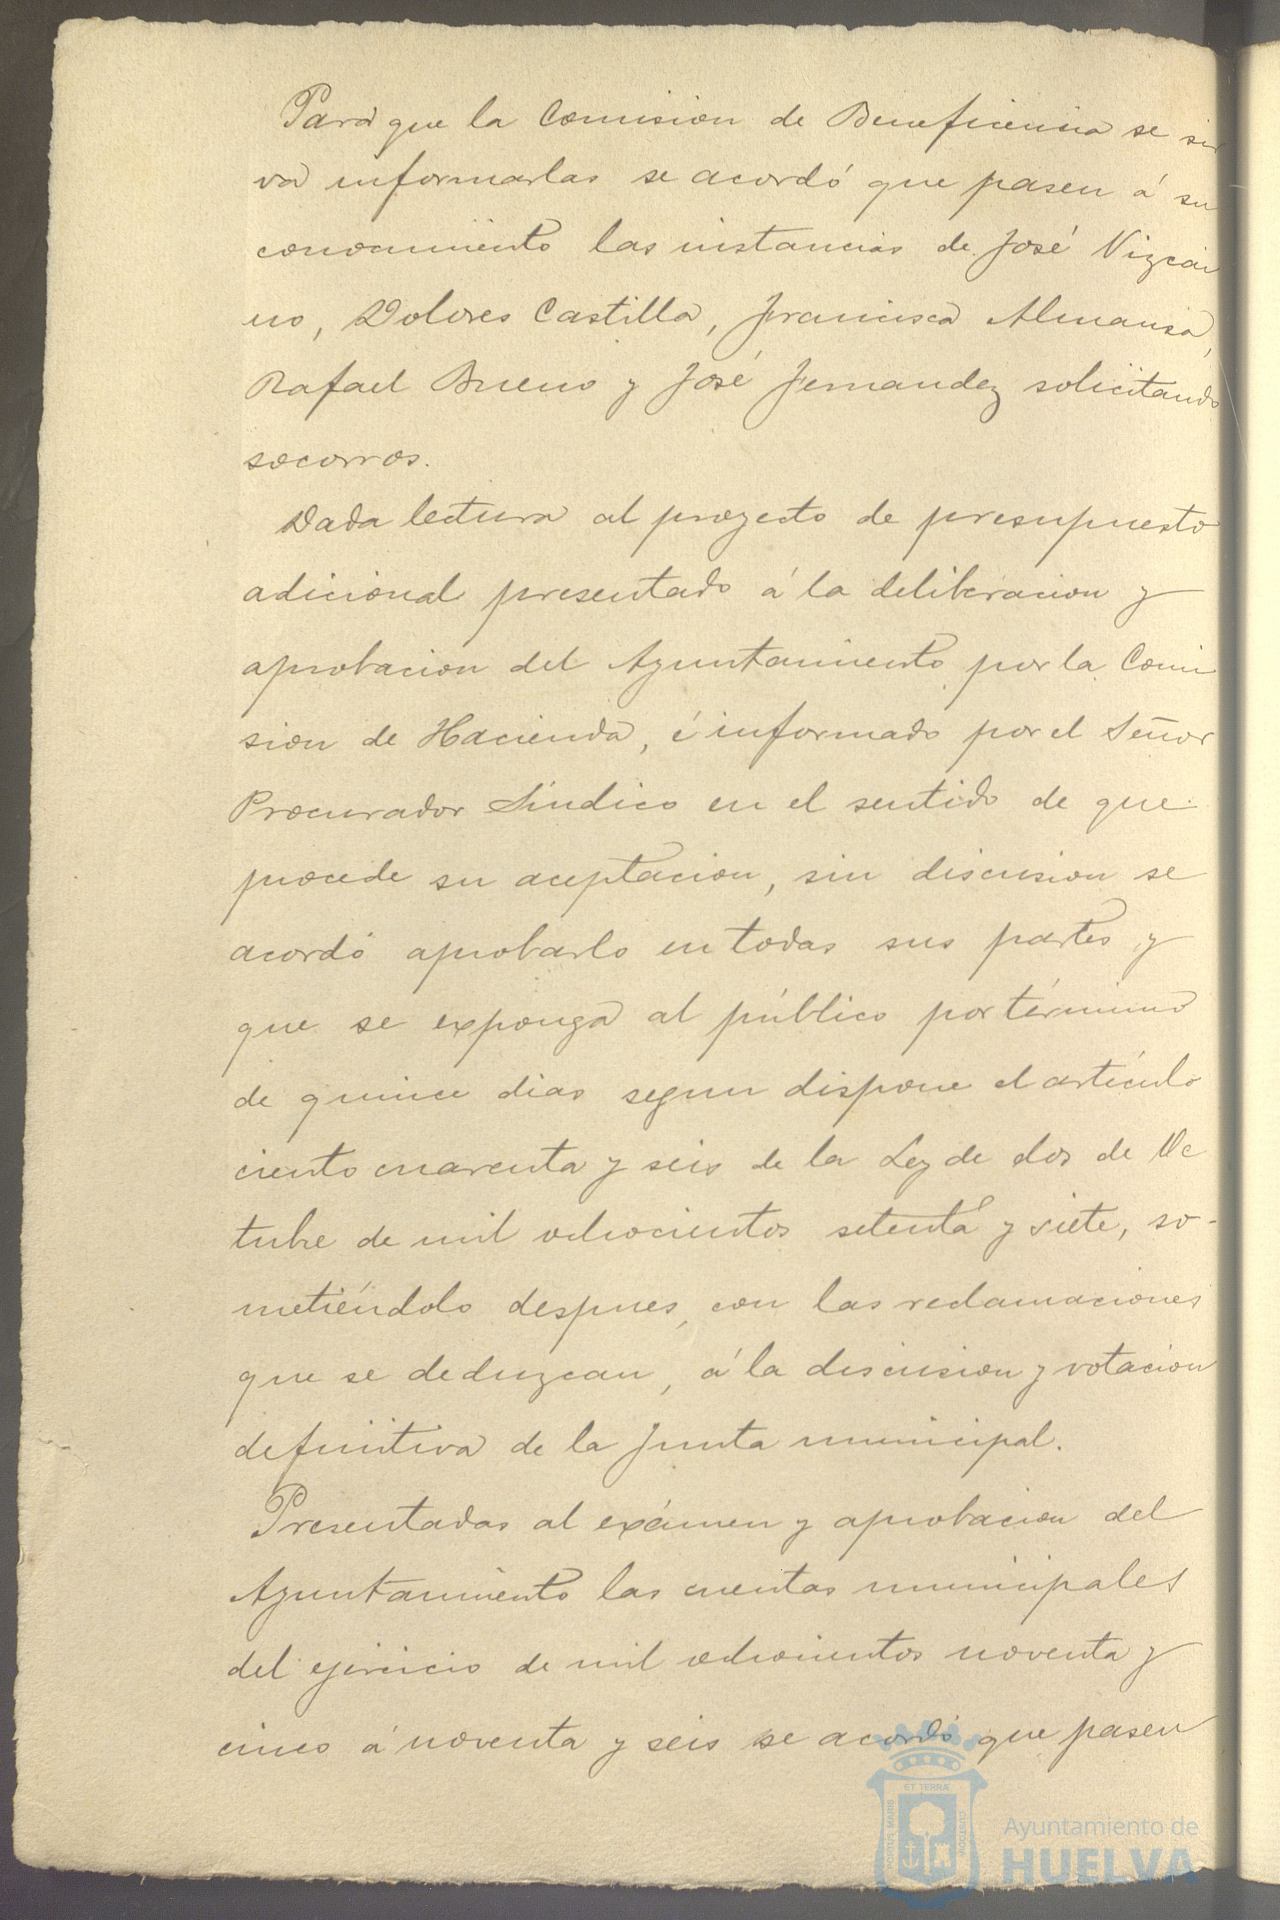 Para que la Comision de Beneficencia se sir
va informarlas se acordó que pasen á su
conocimiento las instancias de José Vizcai
no, Dolores Castilla, Francisca Almansa,
Rafael Bueno y José Fernandez solicitando
socorros.
Dada lectura al proyecto de presupuesto
adicional presentado á la deliberacion y
aprobacion del Ayuntamiento por la Comi
sion de Hacienda, é informado por el Señor
Procurador Síndico en el sentido de que
procede su aceptacion, sin discusion se
acordó aprobarlo en todas sus partes y
que se exponga al público por término
de quince dias segun dispone el artículo
ciento cuarenta y seis de la Ley de dos de Oc
tubre de mil ochocientos setenta y siete, so-
metiéndolo despues, con las reclamaciones
que se deduzcan, á la discusion y votacion
definitiva de la Junta municipal.
Presentadas al exámen y aprobacion del
Ayuntamiento las cuentas municipales
del ejercicio de mil ochocientos noventa y
cinco á noventa y seis se acordó que pasen
ET TERRA
PORTUS MARIS
CUSTODIA
Ayuntamiento de
HUELVA